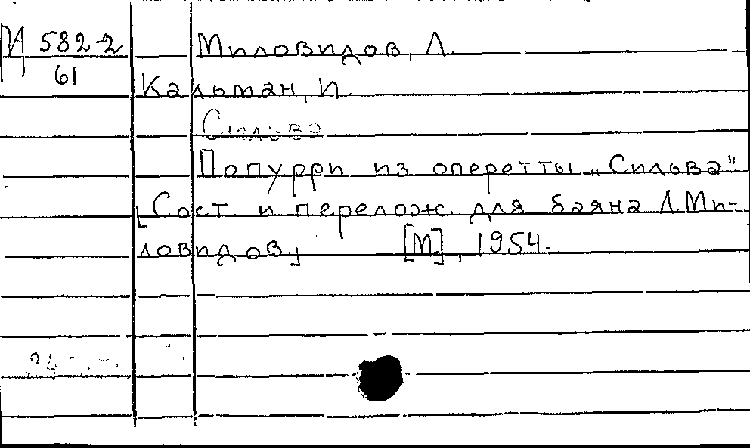 М 582-2
61
Миловидов, Л.
Кальман, И.
Сильва
Попурри из оперетты „Сильва"
[Сост. и перелож. для баяна Л. Ми-
ловидов]      [М], 1954.